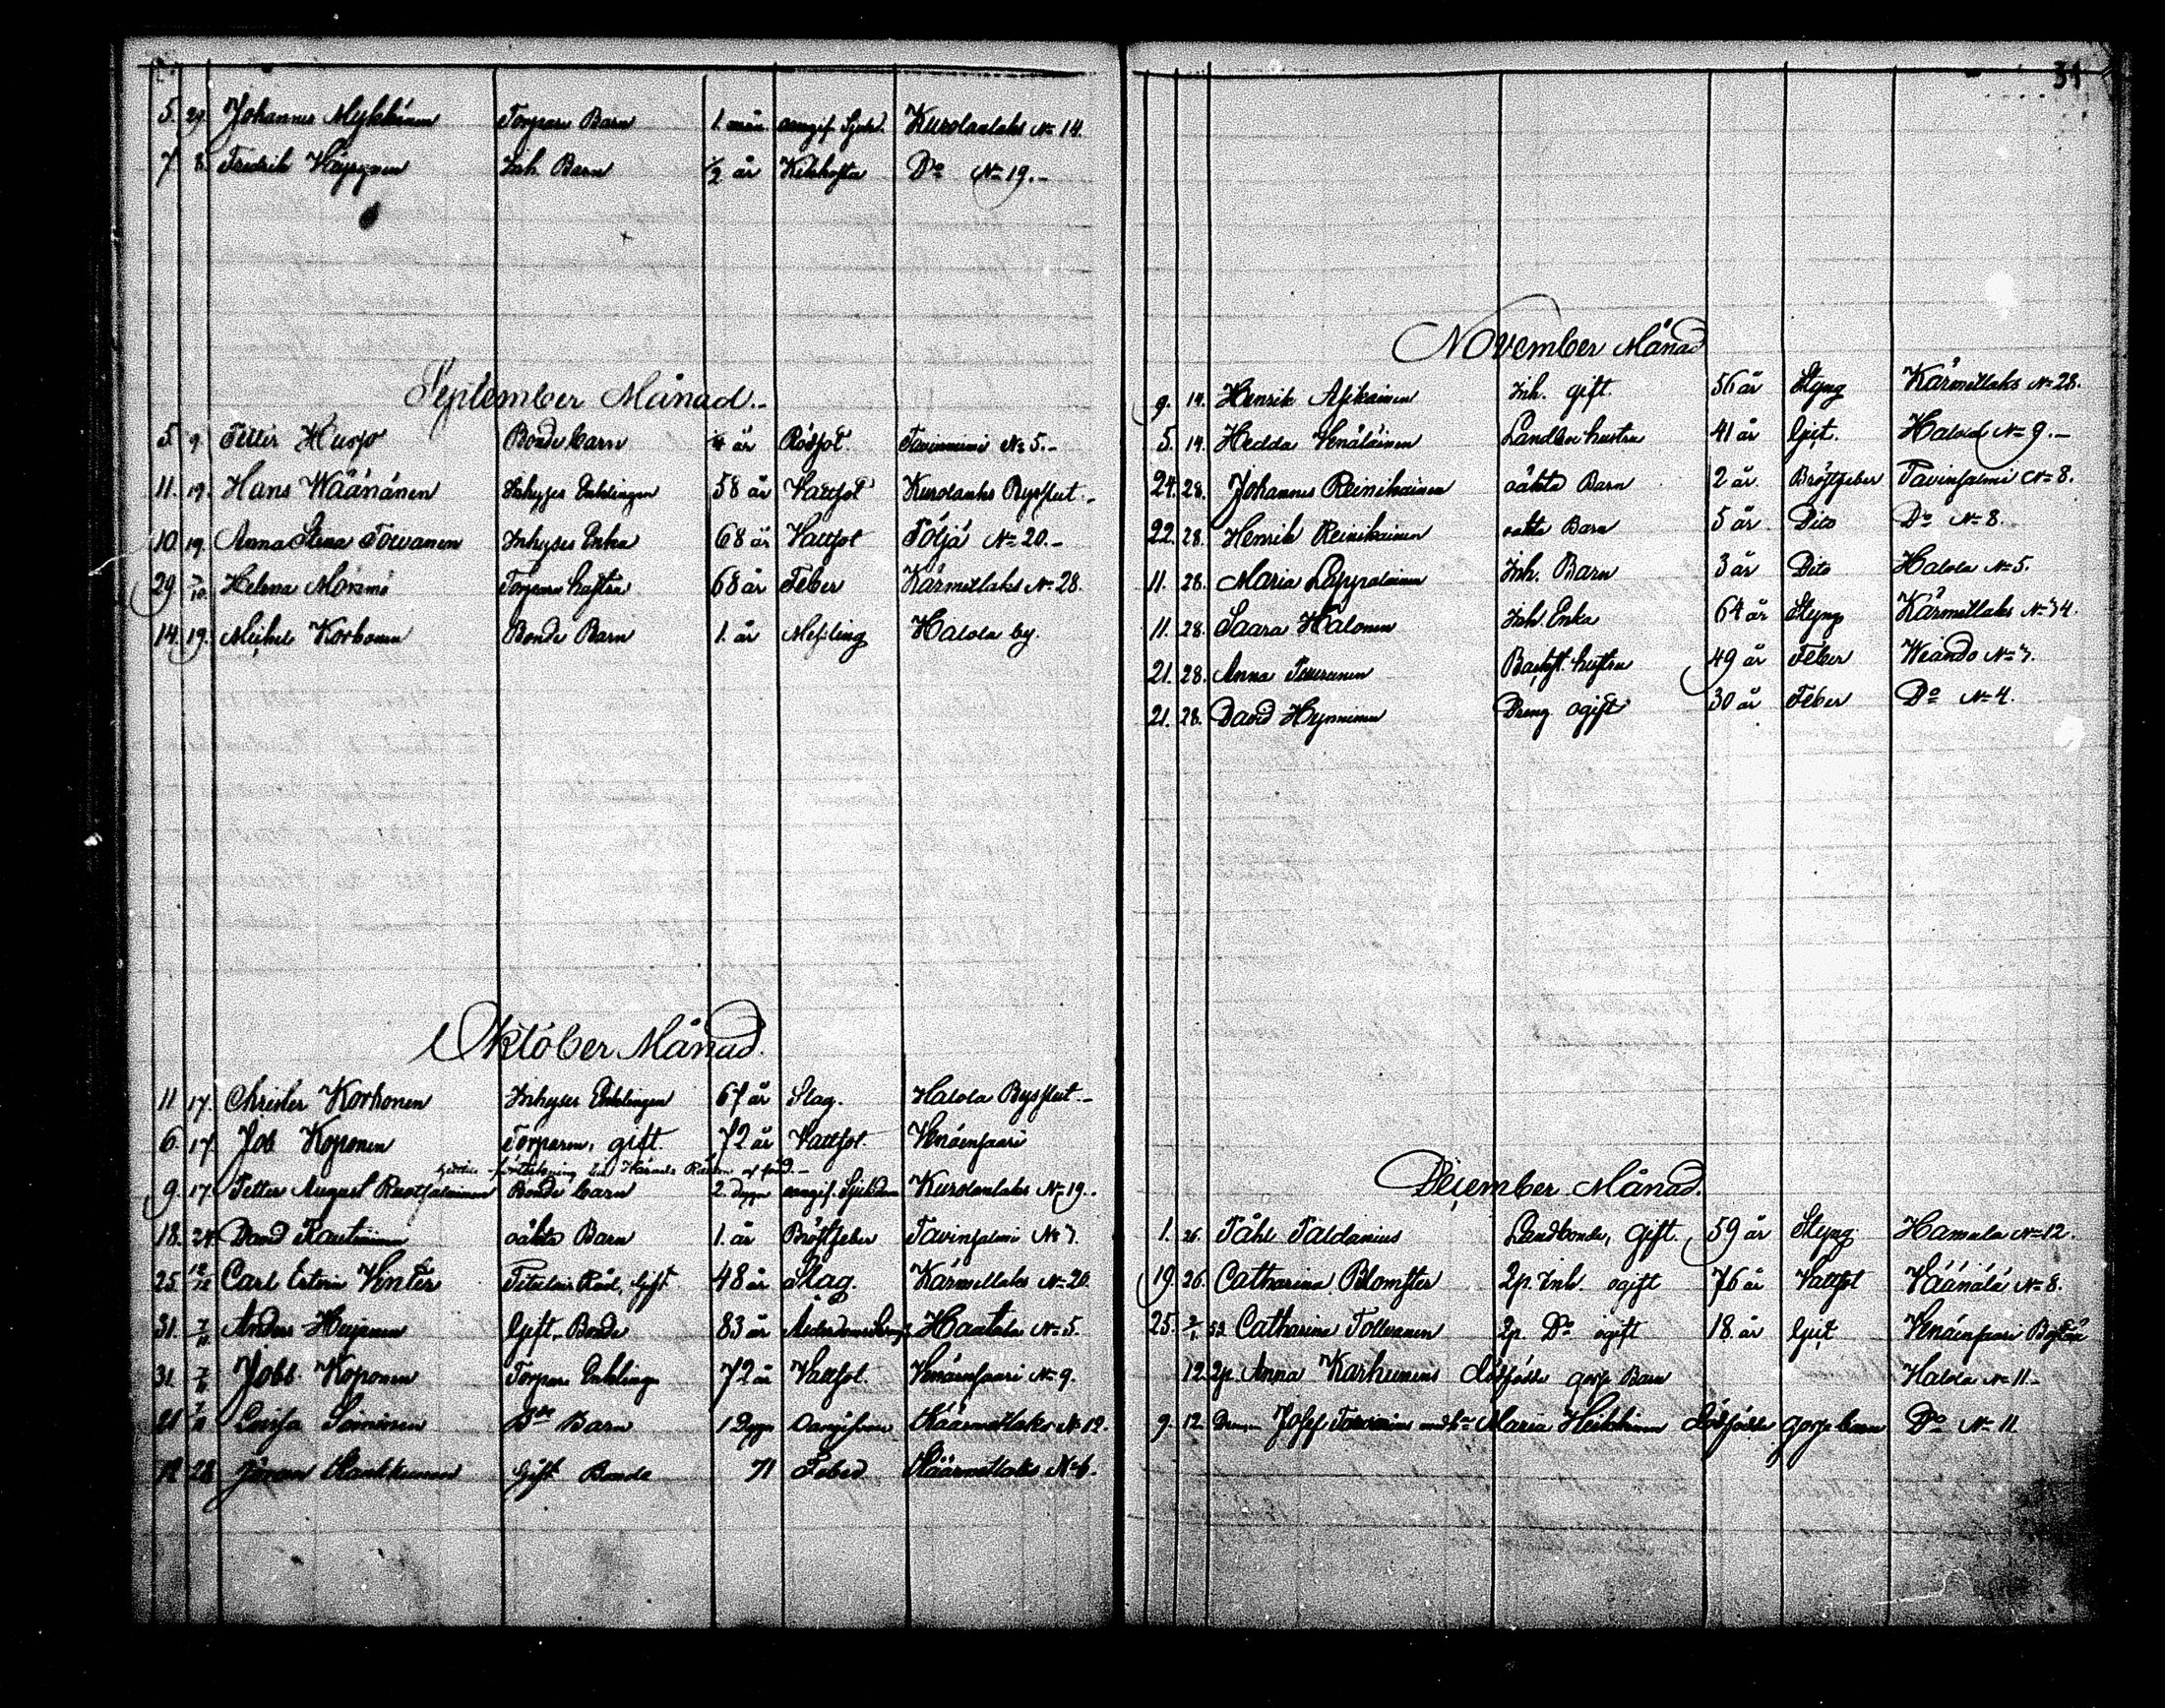 5. 29. Johannes Mykkänen Torpare Barn 1. mån. oangif. Sjukd. Kurolanlaks No 14.
7. 8. Fredrik Häyrynen Inh. Barn 1/2 år Kikhosta Do No 19.-
September Månad.-
5. 9. Petter Husso Bonde barn 1/4 år Rödsot. No 5.-
11. 19. Hans Wäänänen Inhyses Enklingen 58 år Vattsot Kurolanlaks
10. 19. Anna Stina Toivanen Inhyses Enka 68 år Vattsot Pöljä No 20.-
29. 7/10. Helena Torpare hustru 68 år Feber Kärmetlaks No 28.
14. 19. Michel Korhonen Bonde Barn 1. år Messling Halola by.
Oktober Månad.
11 17. Christer Korhonen Inhyses Enklingen 67 år Slag. Halola
6. 17. Job Koponen Torparen, gift. 72 år Vattsot Venäensaari
9. 17. Petter August Ruotsalainen Bonde barn 2. dygn oangif. Sjukdom Kurolanlaks No 19.
18. 24. David Rautiainen oäkta Barn 1. år Bröstfeber Tavinsalmi No 7.
25. Carl Edvin Titulair Råd, Gift 48 år Slag. Kärmetlaks No 26.
31. 7/11 Anders Gift Bonde 83 år Hautala No 5.
31. 7/11 Jobb Koponen Torpare Enkling 72 år Vattsot. Venäensaari No 9.
21 7/11 Barn 1 Dygn Käärmetlaks No 12.
12 28 Göran Gift Bonde 71 Feber Käärmetlaks No 6.
31
November Månad
9. 14. Henrik Asikainen Inh. gift. 56 år Styng Kärmetlaks No 28.
5. 14. Hedda Venäläinen Landbo hustru 41 år Gikt. Halola No 9.-
24. 28. Johannes Reinikainen oäkta Barn 2 år Bröstfeber Tavinsalmi No 8.
22. 28. Henrik Reinikainen oäkta Barn 5 år Dito Do No 8.
11. 28. Maria Lappalainen Inh. Barn 3 år Dito Halola No 5.
11. 28. Saara Halonen Inh. Enka 64 år Styng Kärmetlaks No 34.
21. 28. Anna hustru 49 år Feber Wiando No 7.
21. 28. David Hynninen Dreng ogift 30 år Feber Do No 4.
December Månad.
1. 26. Påhl Paldanius Landbonde, Gift. 59 år Styng Hamula No 12.
19. 26. Catharina Blomster Inh. ogift 76 år Vattsot Väänälä No 8.
25. Catharina Tolvanen Do ogift 18. år Gikt Venäensaari
12. Anna Karhunens Dödfödde gosse Barn Halola No 11.-
9. 12. Josef Maria Heikkinen Dödfödde gosse barn Do No 11